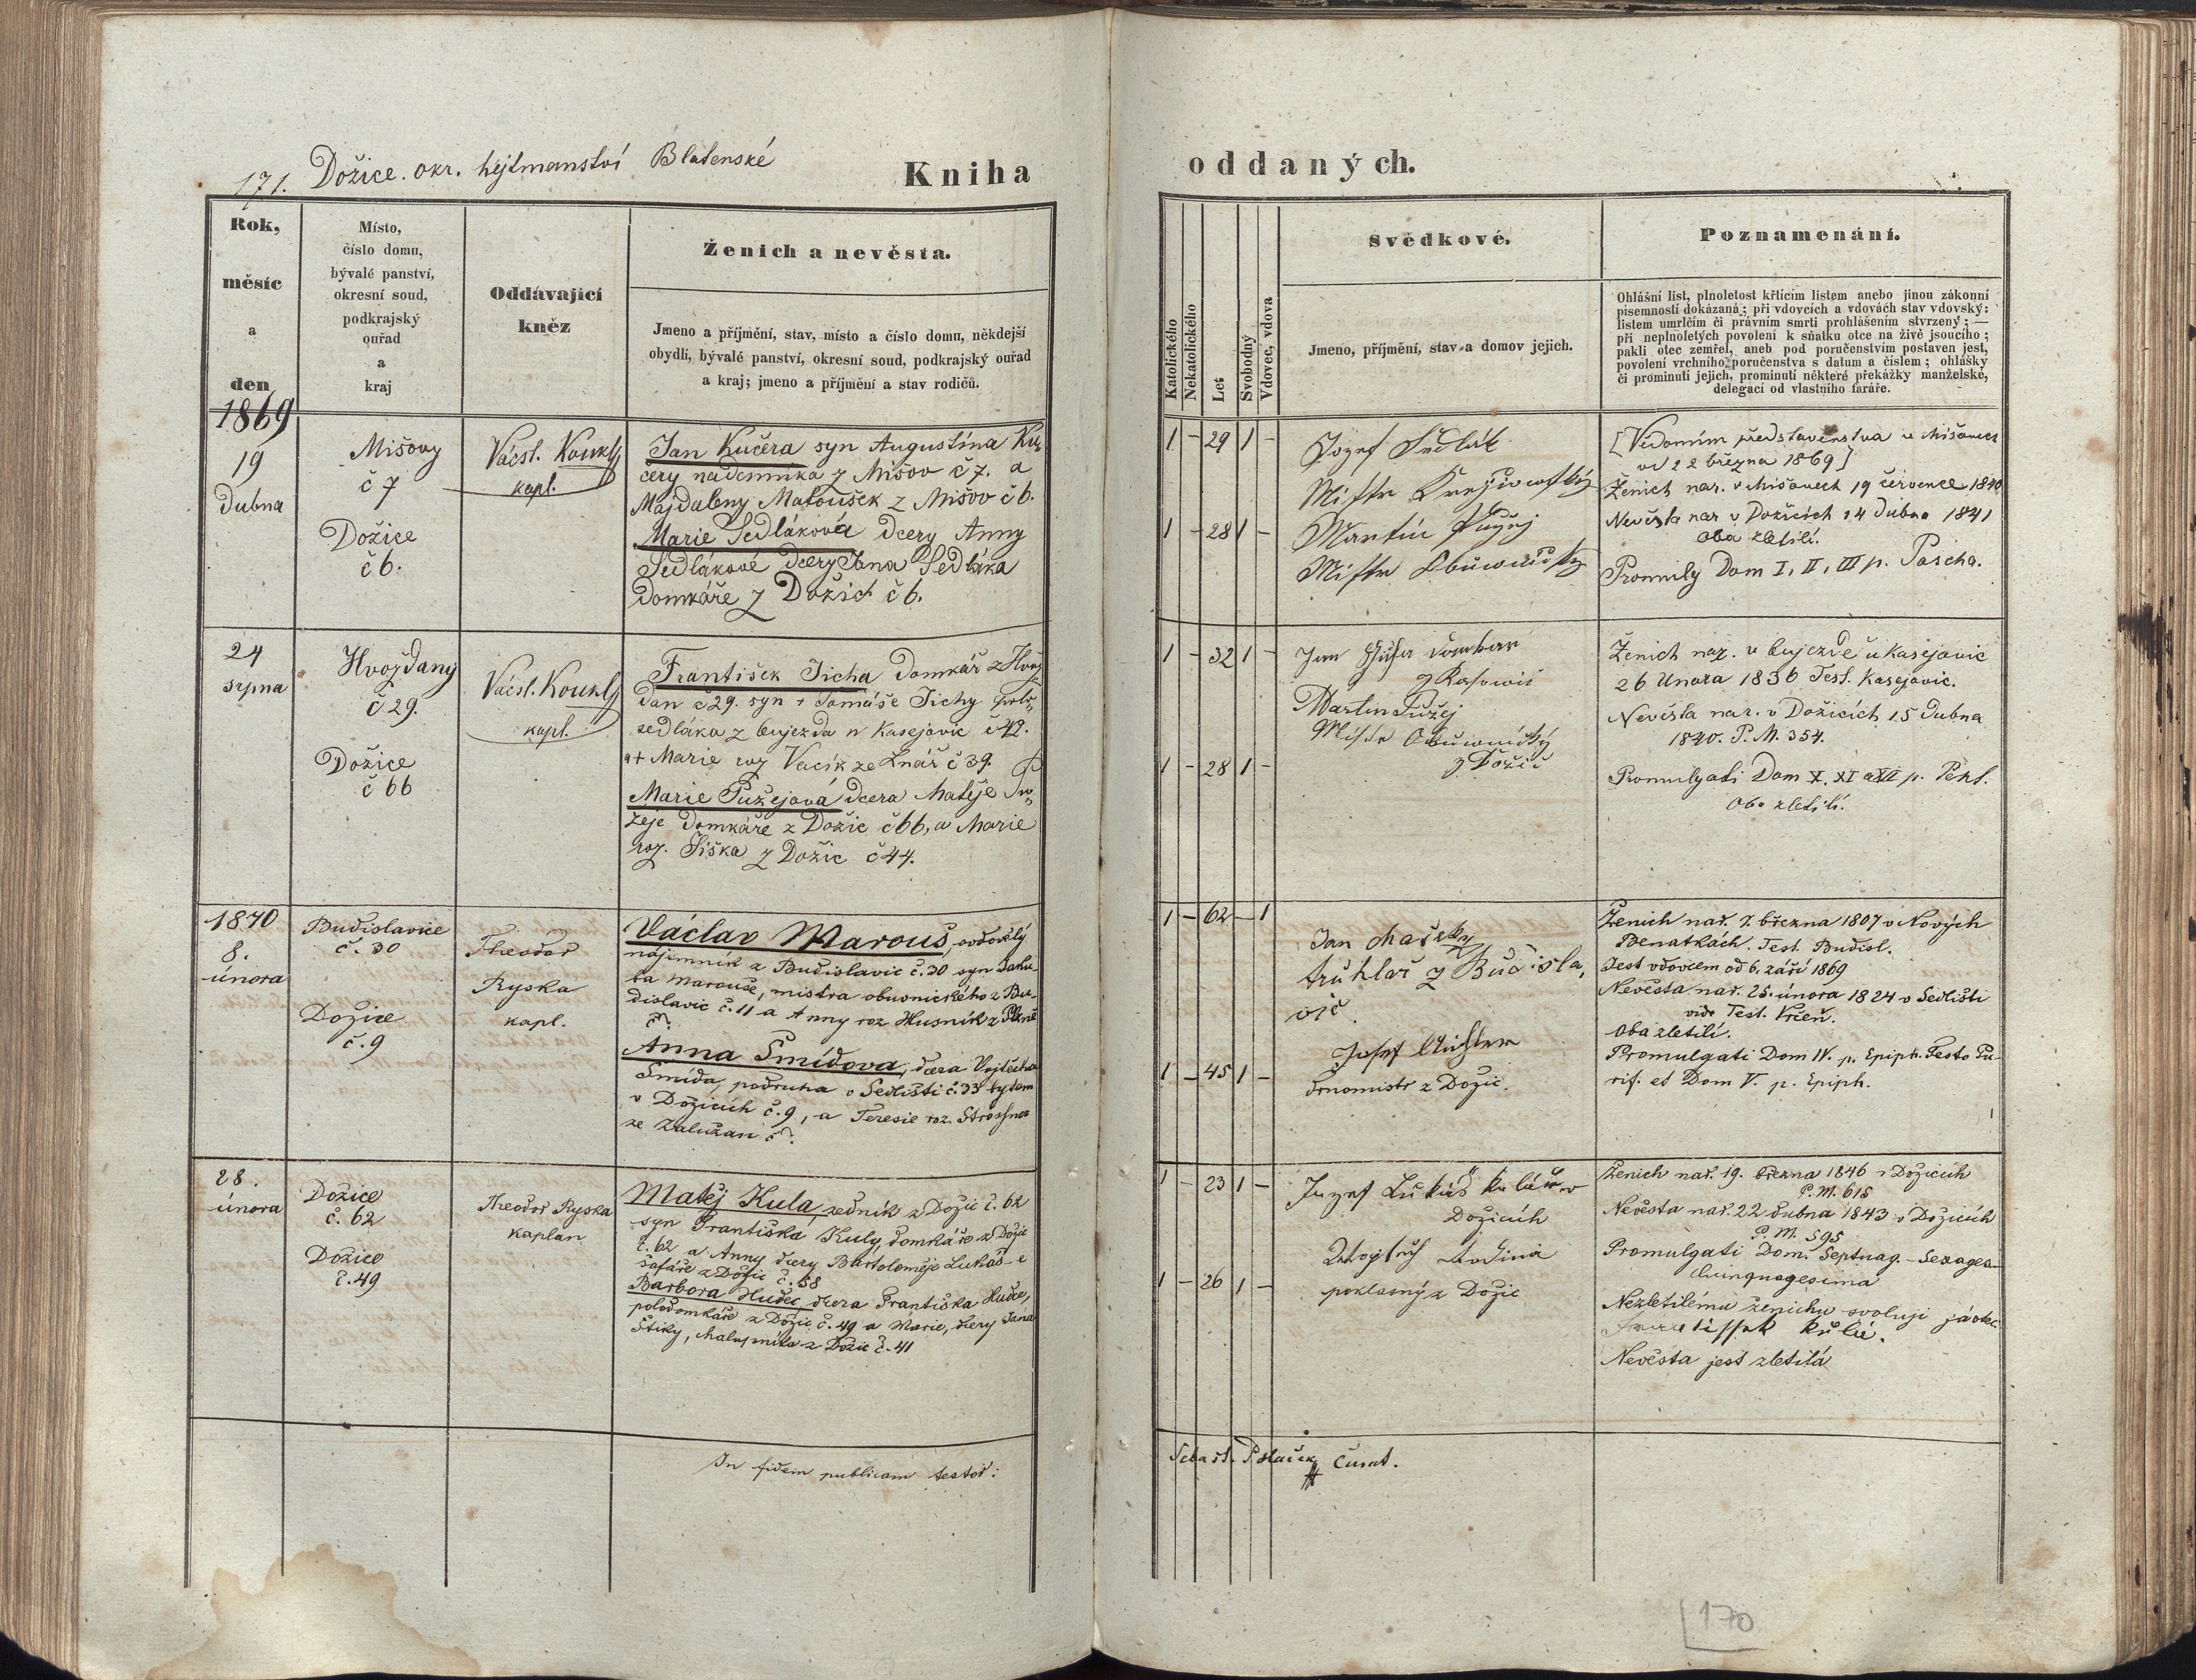 171. Dožice. okr. hejtmanství Blatenské
Kniha
oddaných.
Rok,
měsíc
a
den
Místo,
číslo domu,
bývalé panství,
okresní soud,
podkrajský
ouřad
a
kraj
Oddávající
kněz
Ženich a nevěsta.
Jmeno a příjmění, stav, místo a číslo domu, někdejší
obydlí, bývalé panství, okresní soud, podkrajský ouřad
a kraj; jmeno a příjmění a stav rodičů.
Katolického
Nekatolického
Let
Svobodný
Vdovec, vdova
Svědkové.
Jmeno, příjmění, stav a domov jejich.
Poznamenání.
Ohlášní list, plnoletost křticím listem anebo jinou zákonní
písemností dokázaná; při vdovcích a vdovách stav vdovský:
listem umrlčím či právním smrti prohlášením stvrzený; —
při neplnoletých povolení k sňatku otce na živě jsoucího;
pakli otec zemřel, aneb pod poručenstvím postaven jest,
povolení vrchního poručenstva s datum a číslem; ohlášky
či prominutí jejich, prominutí některé překážky manželské,
delegací od vlastního faráře.
1869
19
dubna
Mišovy
č 7
Dožice
č 6.
Vácsl. Koukl
kapl.
Jan Kučera syn Augustína Ku„
čery nádenníka z Mišov č 7. a
Majdaleny Matoušek z Mišov č 6.
Marie Sedláková dcery Anny
Sedlákové dcery Jana Sedláka
domkáře z Dožict č 6.
1 – 29 1 –
1 – 28 1 –
Jozef Sedlák
Martin
[Vědomím představenstva v Mišovech
od 22 března 1869]
Ženich nar. v Mišovech 19 července 1840
Nevěsta nar v Dožicích 14 dubna 1841
Oba zletilí.
Dom I, II, III p. Pascha.
24
srpna
Hvožďany
č 29.
Dožice
č 66
Vácsl. Koukl
kapl.
František Tichá domkář z Hvož„
dan č 29. syn + Tomáše Tichy polo„
sedláka z bujezda u Kasejovic č 42.
a + Marie roz Vacík ze Lnář č 39.
Marie Pužejová dcera Matěje Pu„
žeje domkáře z Dožic č 66, a Marie
roz. Šiška z Dožic č 44.
1 – 32 1 –
1 – 28 1 –
Jan
Martin Pužej
z Dožic
Ženich nar. v bujezdě u Kasejovic
26 Unora 1836 Test. Kasejovic.
Nevěsta nar. v Dožicích 15 dubna
1840. P. M. 354.
Promulgati Dom X. XI a XII p. Pent.
Oba zletilí.
1870
8.
února
Budislavice
č. 30
Dožice
č. 9
Theodor
Ryska
kapl.
Václav Marouš, ovdovělý
nájemník z Budislavic č. 30 syn Jaku-
ba Marouše, mistra obuvnického z Bu-
dislavic č. 11 a Anny roz Husník z Plzně
č ?.
Anna Šmídova, dcera Vojtěcha
Šmída, podruha v Sedlišti č. 33 bytem
v Dožicích č. 9, a Teresie roz.
ze Zalužan č ?.
1 – 62 – 1
1 – 45 1 –
Jan Mašek
truhlař z Budisla,
vic
Josef
z Dožic.
Ženich nar. 7. března 1807 v Nových
Benátkách. Test. Budisl.
Jest vdovcem od 6. září 1869
Nevěsta nar. 25. února 1824 v Sedlišti
vide Test. Vrčeň.
Oba zletilí.
Promulgati Dom IV. p. Epiph. Festo Pu-
rif. et Dom V. p. Epiph.
28.
února
Dožice
č. 62
Dožice
č. 49
Theodor Ryska
kaplan
Matěj Kula, zedník z Dožic č. 62
syn Františka Kuly, domkáře z Dožic
č. 62 a Anny dcery Bartoloměje Lukáš-e
šafáře z Dožic č. 58
Barbora Hudec, dcera Františka Hudce,
polodomkáře z Dožic č. 49 a Marie, dcery Jana
Štiky, chalupníka z Dožic č. 41
1 – 23 1 –
1 – 26 1 –
Jozef Lukáš kolář v
Dožicích
poklasný z Dožic
Ženich nar. 19. března 1846 v Dožicích
P. M. 615
Nevěsta nar. 22 dubna 1843 v Dožicích
P. M. 595
Promulgati Dom. Septuag. – Sexages-
Quinquagesima
Nezletilému ženichu svoluji já otec
Kula.
Nevěsta jest zletilá
In fidem publicam testor:
Sebast. Polaček
170